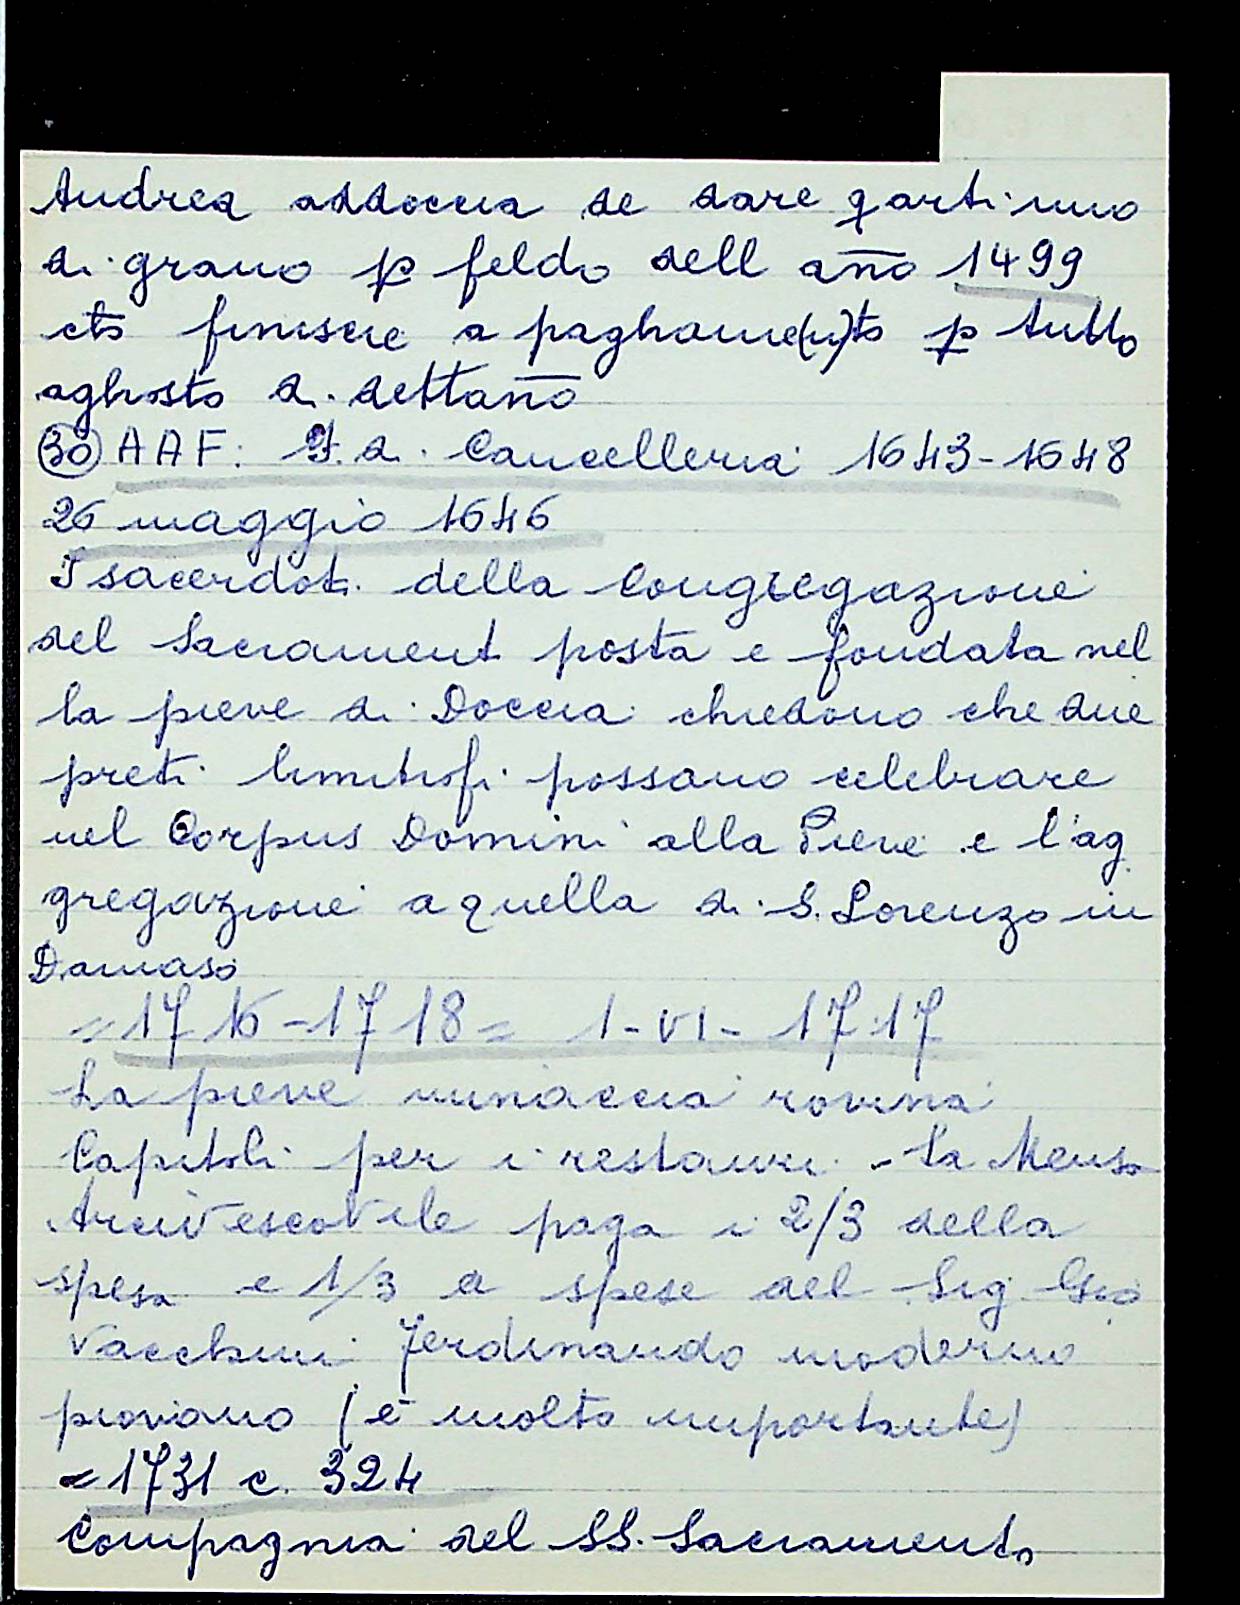 Andrea addoccia de dare qarti uno
di grano p feldo dell año 1499
eto finiscie a paghame(n)to p tutto
aghosto d. dettaño
(30) AAF: F. d. Cancelleria 1643-1648
26 maggio 1646
I sacerdoti della Congregazione
del Sacrament posta e fondata nel
la pieve di Doccia chiedono che due
preti limitrofi possano celebrare
nel Corpus Domini alla Pieve e l'ag
gregazione a quella di S. Lorenzo in
Damaso
= 1716-1718 = 1-VI-1717
La pieve minaccia rovina
Capitoli per i restauri - La Mensa
Arcivescovile paga i 2/3 della
spesa e 1/3 a spese del Sig Gio
Vacchini Ferdinando moderno
piovano (è molto importante)
= 1731 c. 324
Compagnia del SS. Sacramento